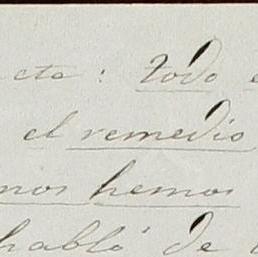 cta: todo
el remedio
nos hemos
habló de